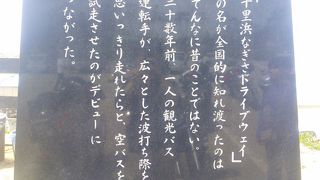 千里浜なぎさドライブウェイ」
の名が全国的に知れ渡ったのは
てんなに昔のことではない。
二十数年前、一人の観光バス
運転手が、広々とした波打ち際を
思いっきり走れたらと、空バスを
試走させたのがデビューに
つながった。